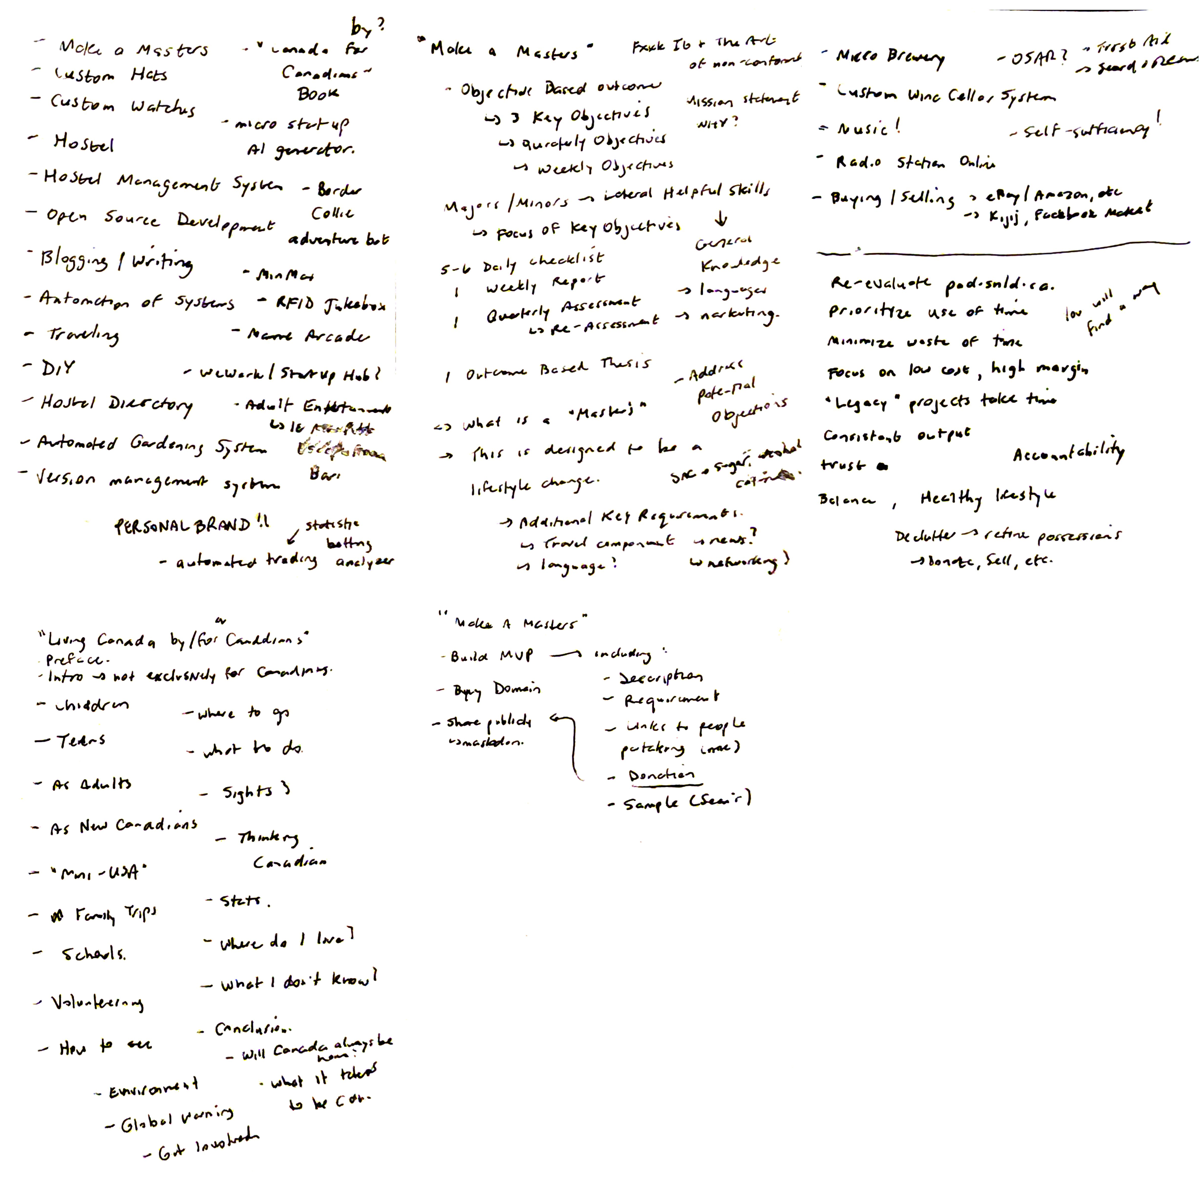 by?
- Make a Masters
- Custom Hats
- Custom Watches
- Hostel
- Hostel Management System
- Open Source Development
- Blogging / Writing
- Automation of Systems
- Traveling
- DIY
- Hostel Directory
- Automated Gardening System
- Version management system
- "Canada for
Canadians"
Book
- micro start up
AI generator.
- Border
Collie
adventure bot
- MinMax
- RFID Jukebox
- Mame Arcade
- WeWork / Startup Hub?
- Adult Entertainment
Bar.
PERSONAL BRAND!!
statistic
betting
- automated trading analyzer
"Make a Masters"
Fuck It + The Art
of non-conformity
- Objective Based outcome
↳ 3 Key Objectives
↳ Quarterly Objectives
↳ Weekly Objectives
Mission statement
WHY?
Majors / Minors → Lateral Helpful Skills
↳ Focus of Key Objectives
General
Knowledge
→ languages
→ marketing.
5-6 Daily checklist
1 Weekly Report
1 Quarterly Assessment
↳ Re-Assessment
1 Outcome Based Thesis
- Address
Potential
Objections
↳ What is a "Masters"
→ This is designed to be a
lifestyle change.
sugar, alcohol
→ Additional Key Requirements.
↳ Travel component
↳ language?
→ news?
↳ networking?
- Micro Brewery
- Custom Wine Cellar System
- Music!
- Radio Station Online
- Buying / Selling → eBay / Amazon, etc
→ Kijij, Facebook Market
- OSAR? → First Aid
→ Search + Rescue
- Self-sufficiency!
Re-evaluate podsnld.ca.
Prioritize use of time
Minimize waste of time
Focus on low cost, high margin
"Legacy" projects take time
Consistent output
trust
Balance, Healthy lifestyle
you will
find a way
Accountability
Declutter → refine possessions
→ Donate, Sell, etc.
"Living Canada by/for Canadians"
Preface.
- Intro → not exclusively for Canadians.
- Children
- Teens
- As Adults
- As New Canadians
- "Mini-USA"
- Family Trips
- Schools.
- Volunteering
- How to see
- Environment
- Global warming
- Get Involved
- Where to go
- what to do.
- Sights?
- Thinking
Canadian.
- Stats.
- Where do I live?
- What I don't know?
- Conclusion.
- Will Canada always be
home?
- what it takes
to be Cdn.
"Make A Masters"
- Build MVP → including:
- Buy Domain
- Share publicly
↳ mastodon.
- Description
- Requirement
- Links to people
partaking (me)
- Donation
- Sample (Semi's)